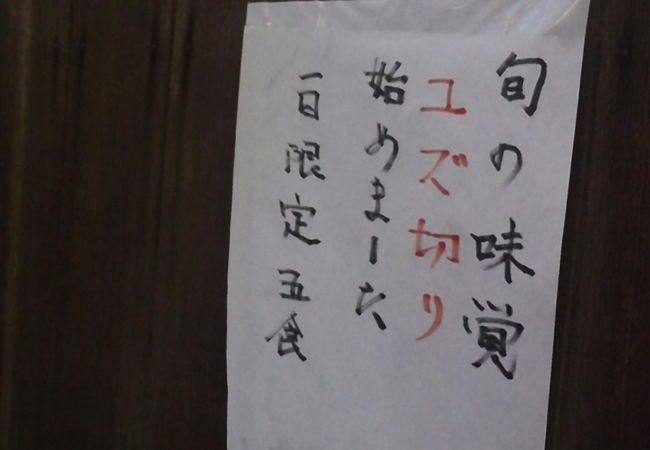 旬の味覚
ユズ切り
始めました
一日限定五食